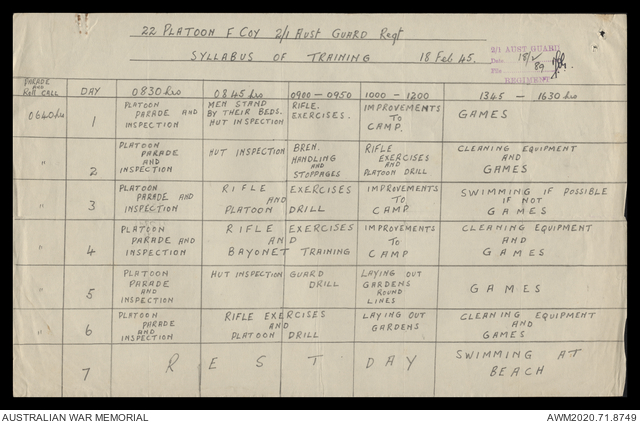 22 PLATOON F COY 2/1 AUST GUARD Regt
SYLLABUS OF TRAINING 18 Feb 45.
2/1 AUST GUARD
Date 18/2
File 89
REGIMENT
PARADE AND ROLL CALL DAY 0830 hrs 0845 hrs 0900 — 0950 1000 — 1200 1345 — 1630 hrs
0640 hrs 1 PLATOON PARADE AND INSPECTION MEN STAND BY THEIR BEDS. HUT INSPECTION RIFLE. EXERCISES. IMPROVEMENTS TO CAMP. GAMES
" 2 PLATOON PARADE AND INSPECTION HUT INSPECTION BREN. HANDLING AND STOPPAGES RIFLE EXERCISES AND PLATOON DRILL CLEANING EQUIPMENT AND GAMES
" 3 PLATOON PARADE AND INSPECTION RIFLE EXERCISES AND PLATOON DRILL IMPROVEMENTS TO CAMP SWIMMING IF POSSIBLE IF NOT GAMES
" 4 PLATOON PARADE AND INSPECTION RIFLE EXERCISES AND BAYONET TRAINING IMPROVEMENTS TO CAMP CLEANING EQUIPMENT AND GAMES
" 5 PLATOON PARADE AND INSPECTION HUT INSPECTION GUARD DRILL LAYING OUT GARDENS ROUND LINES GAMES
" 6 PLATOON PARADE AND INSPECTION RIFLE EXERCISES AND PLATOON DRILL LAYING OUT GARDENS CLEANING EQUIPMENT AND GAMES
7 REST DAY SWIMMING AT BEACH
AUSTRALIAN WAR MEMORIAL AWM2020.71.8749